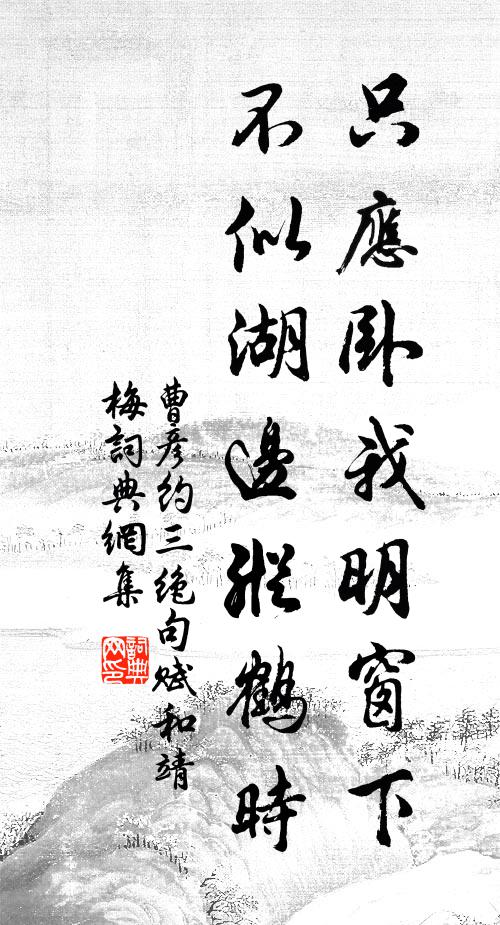 只應卧我明窗下
不似湖邊縱鶴時
曹彥約三絶句賦和靖
梅詞典網集
詞典
网印